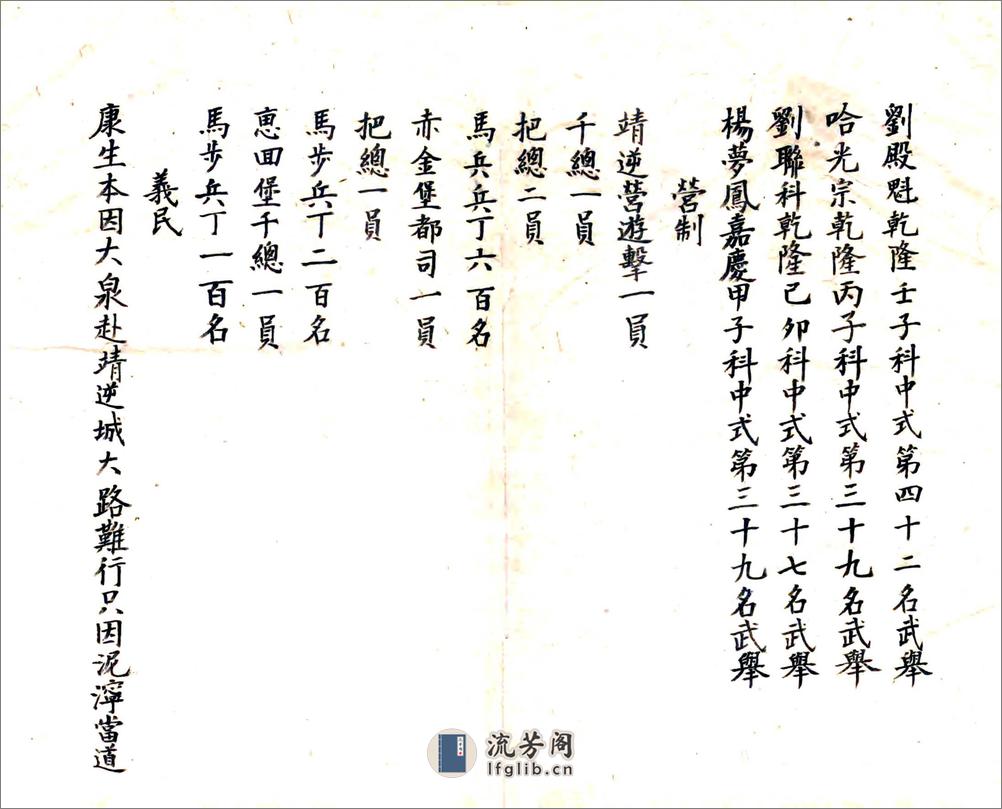 劉殿魁乾隆壬子科中式第四十二名武舉
哈光宗乾隆丙子科中式第三十九名武舉
劉聯科乾隆己卯科中式第三十七名武舉
楊夢鳳嘉慶甲子科中式第三十九名武舉
營制
靖逆營遊擊一員
千總一員
把總二員
馬兵兵丁六百名
赤金堡都司一員
把總一員
馬步兵丁二百名
惠回堡千總一員
馬步兵丁一百名
義民
康生本因大泉赴靖逆城大路難行只因泥濘當道
流芳阁
lfglib.cn